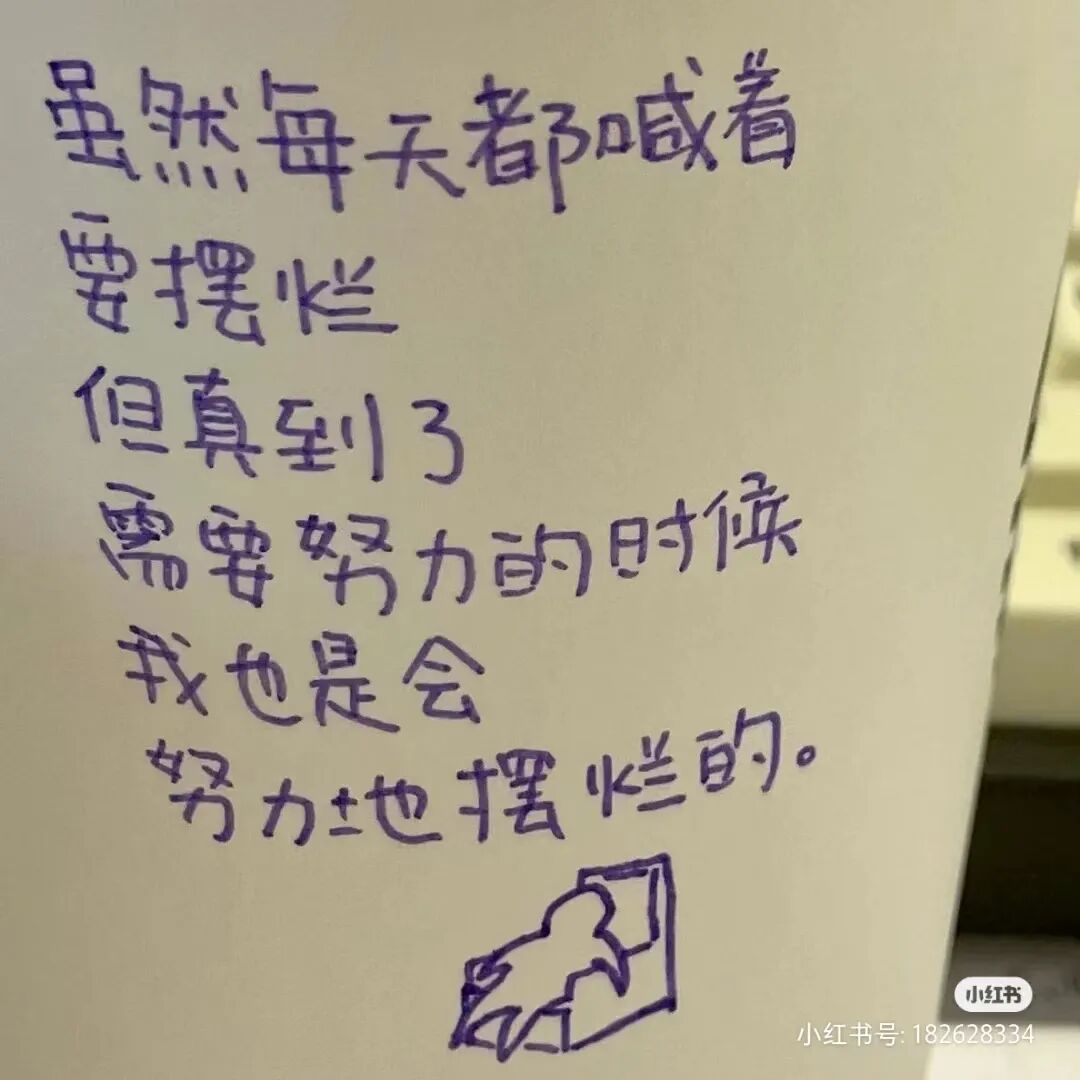 虽然每天都喊着
要摆烂
但真到了
需要努力的时候
我也是会
努力地摆烂的。
小红书
小红书号: 182628334